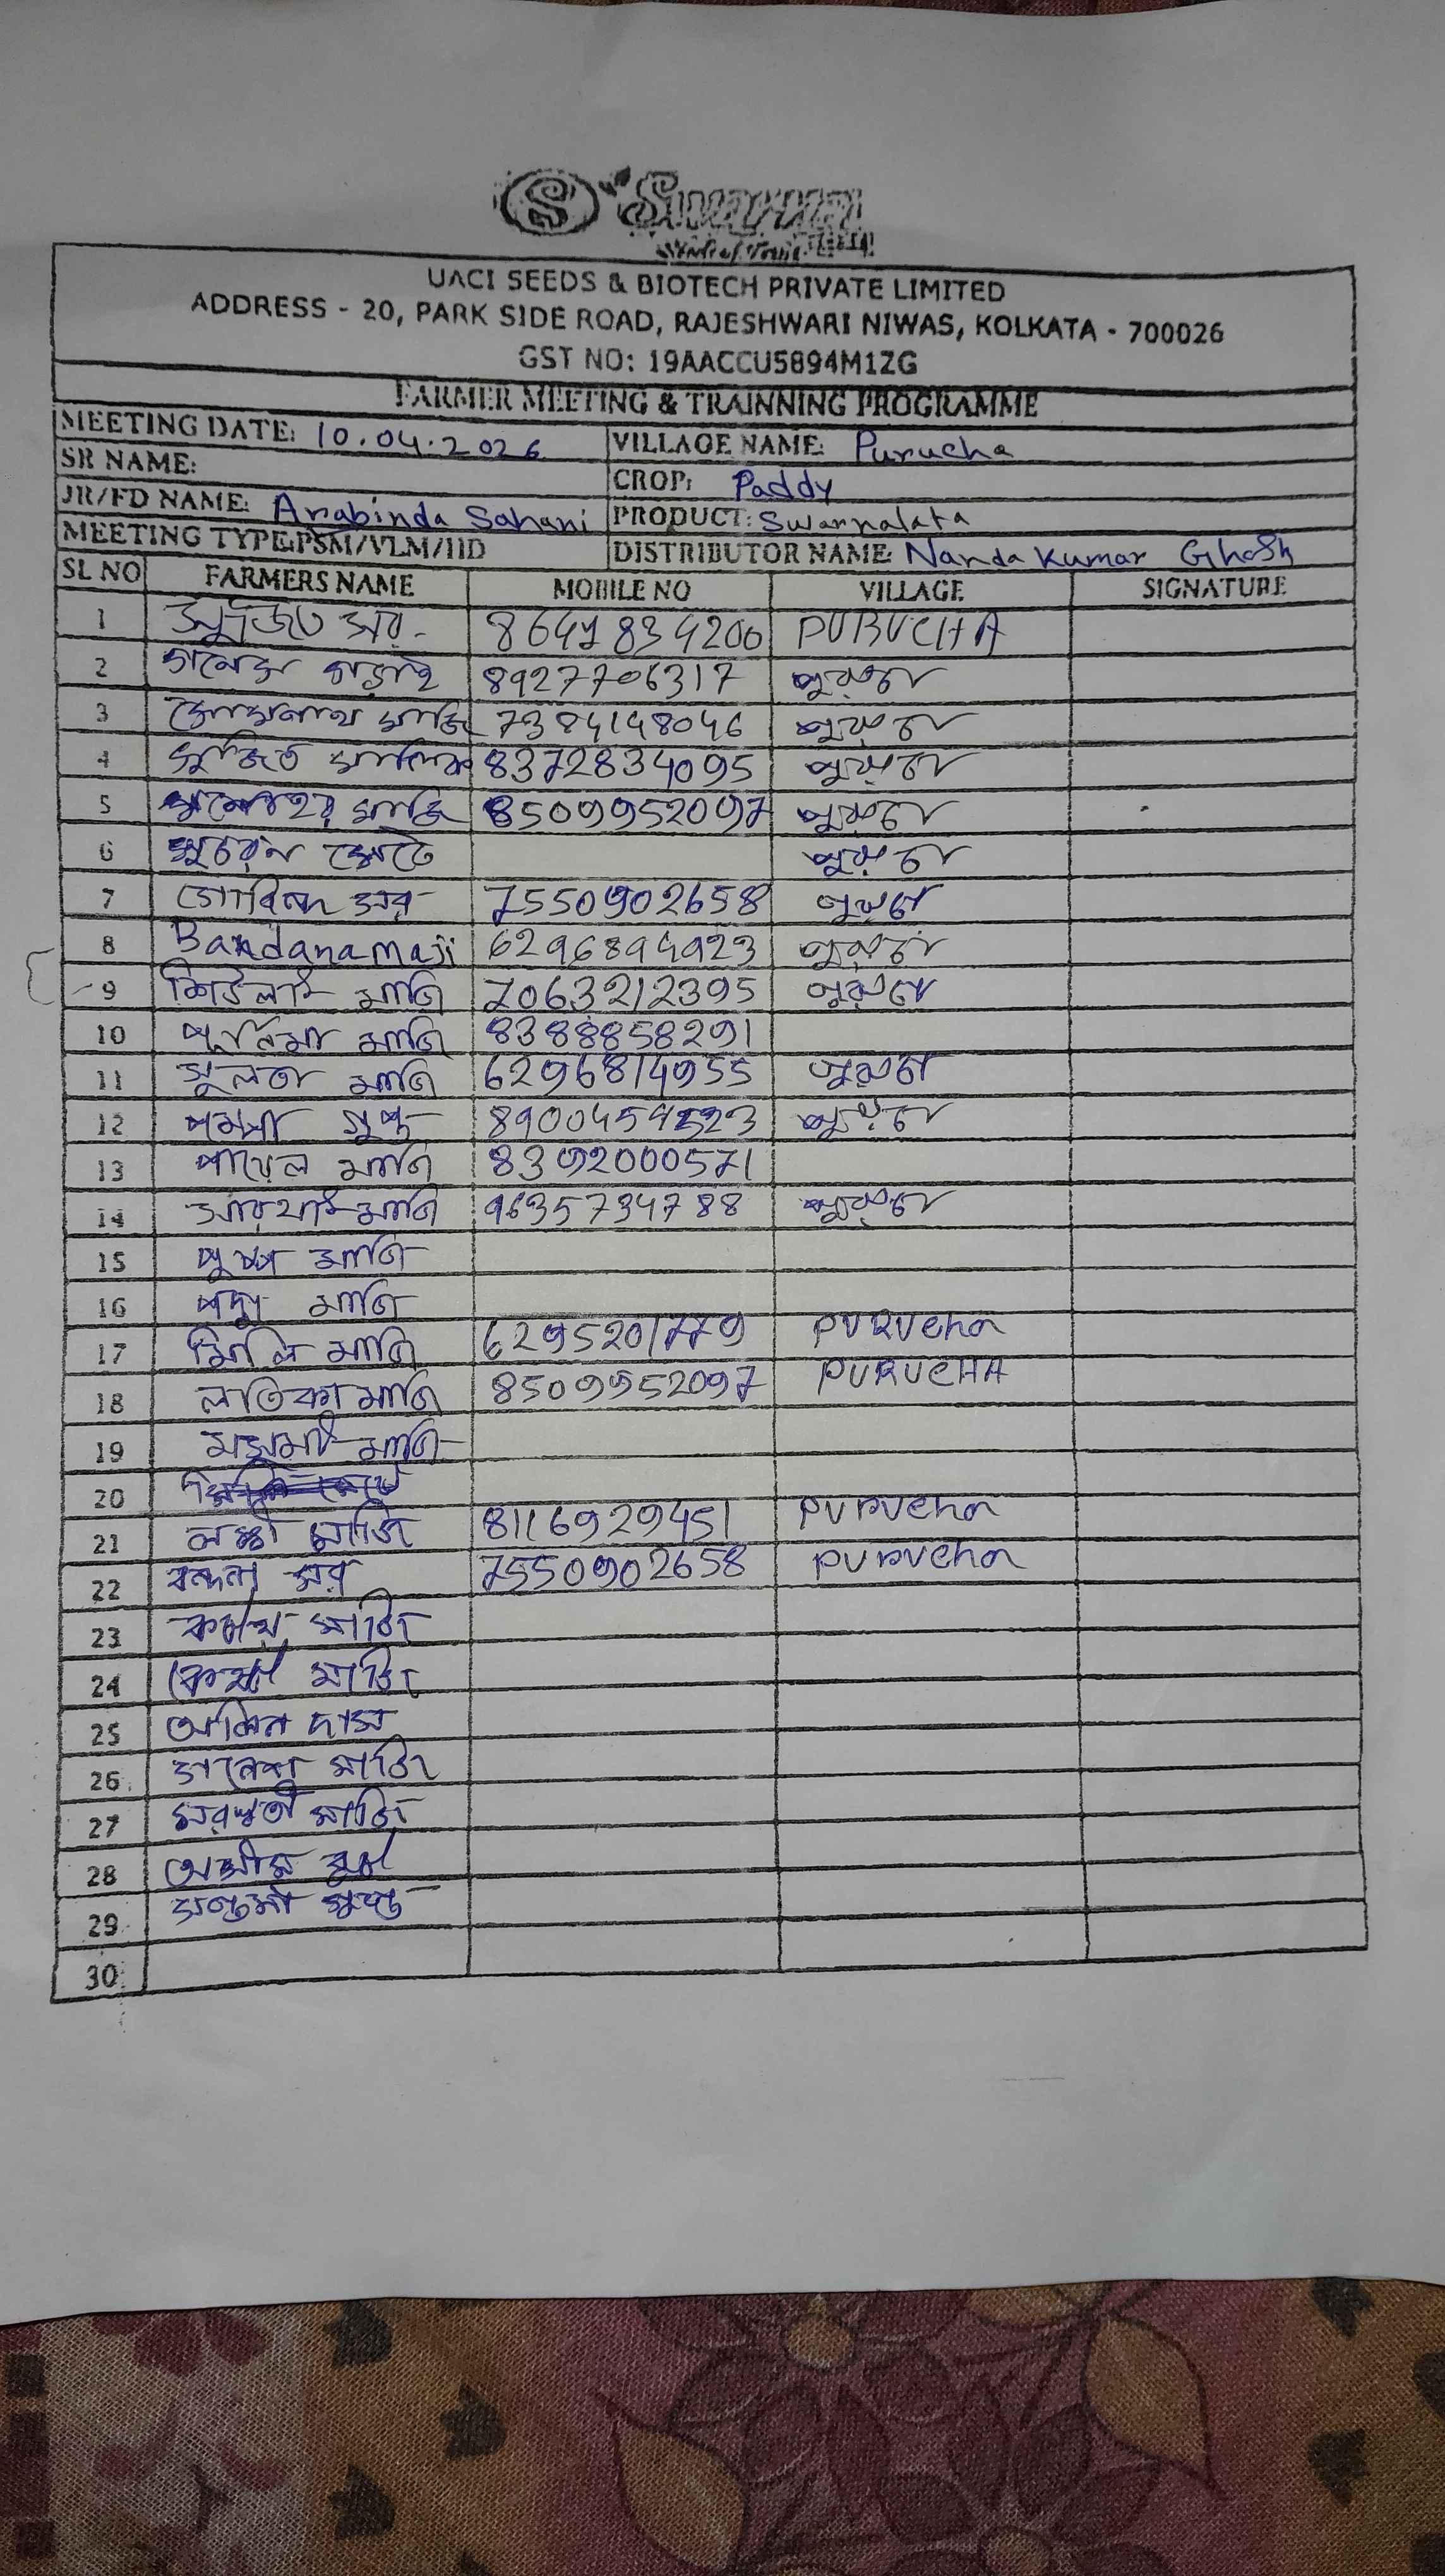 Swarna
UACI SEEDS & BIOTECH PRIVATE LIMITED
ADDRESS - 20, PARK SIDE ROAD, RAJESHWARI NIWAS, KOLKATA - 700026
GST NO: 19AACCU5894M1ZG
FARMER MEETING & TRAINNING PROGRAMME
MEETING DATE: 10.04.2026 VILLAGE NAME: Purucha
SR NAME: CROP: Paddy
JR/FD NAME: Arabinda Sahani PRODUCT: Swarnalata
MEETING TYPE:PSM/VLM/IID DISTRIBUTOR NAME: Nanda Kumar Ghosh
SL NO FARMERS NAME MOBILE NO VILLAGE SIGNATURE
1 সুজিত সর 8647834200 PURUCHA
2 গড়াই 8927706317 পুরুচা
3 সোমনাথ মাজি 7384148046 পুরুচা
4 সুজিত মালিক 8372834095 পুরুচা
5 মাজি 8509952097 পুরুচা
6 পুরুচা
7 গোবিন্দ সর 7550902658 পুরুচা
8 Bandana maji 6296894923 পুরুচা
9 মাজি 7063212395 পুরুচা
10 পূর্নিমা মাজি 8388858291
11 সুলতা মাজি 6296814955 পুরুচা
12 গুপ্ত 8900454523 পুরুচা
13 পায়েল মাজি 8392000571
14 মাজি 9635734788 পুরুচা
15 পুষ্প মাজি
16 পদ্ম মাজি
17 মিলি মাজি 6295201779 PURUCHA
18 লতিকা মাজি 8509952097 PURUCHA
19 মাজি
20
21 লক্ষী মাজি 8116929451 PURUCHA
22 বন্দনা সর 7550902658 PURUCHA
23 মাজি
24 মাজি
25 দাস
26 মাজি
27 সরস্বতী মাজি
28 অসীম
29 গুপ্ত
30